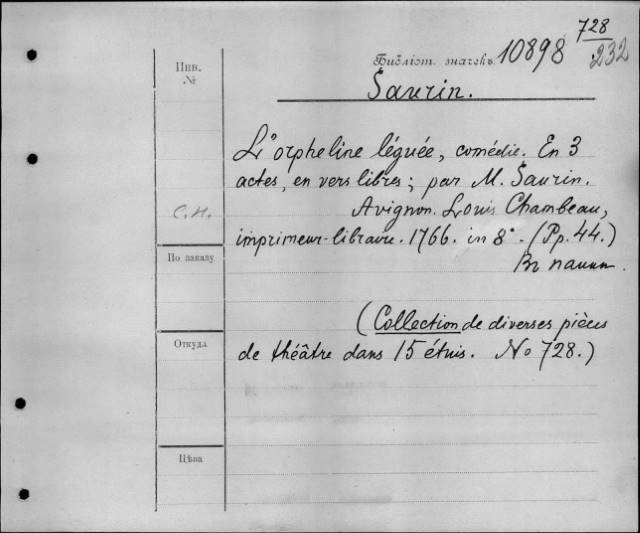 728
Инв. Библіот. значекъ 10898 232
№
Saurin.
L'orpheline léguée, comédie. En 3
actes, en vers libres; par M. Saurin.
С.Н. Avignon. Louis Chambeau,
imprimeur-libraire. 1766. in 8°. (Pp. 44.)
По заказу
Въ папкѣ.
(Collection de diverses pièces
Откуда
de théâtre dans 15 étuis. No 728.)
Цѣна